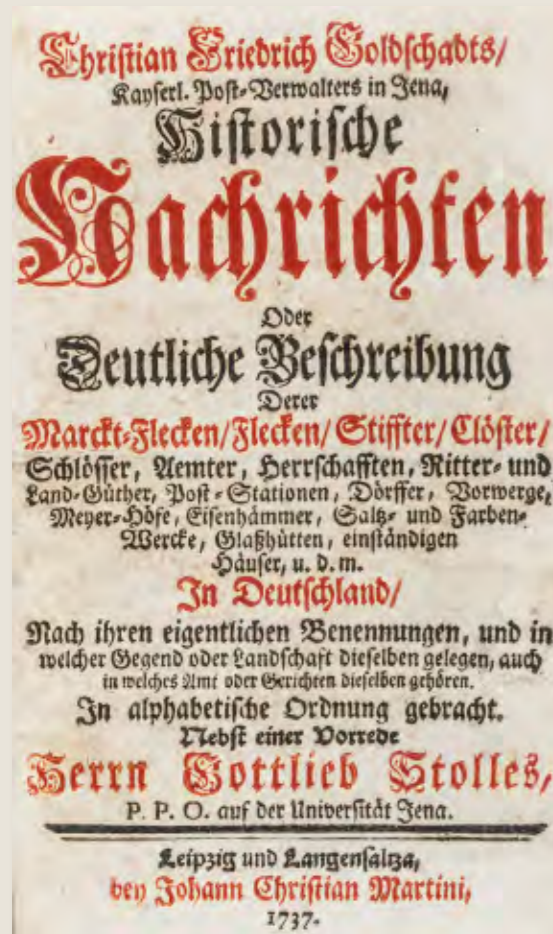 Christian Friedrich Goldschadts/
Kayserl. Post-Verwalters in Jena,
Historische
Nachrichten
Oder
Deutliche Beschreibung
Derer
Marckt-Flecken/Flecken/ Stiffter/ Clöster/
Schlösser, Aemter, Herrschafften, Ritter- und
Land-Güther, Post-Stationen, Dörffer, Vorwerge,
Meyer-Höfe, Eisenhämmer, Saltz- und Farben-
Wercke, Glaßhütten, einständigen
Häuser, u. d. m.
In Deutschland/
Nach ihren eigentlichen Benennungen, und in
welcher Gegend oder Landschaft dieselben gelegen, auch
in welches Amt oder Gerichten dieselben gehören.
In alphabetische Ordnung gebracht.
Nebst einer Vorrede
Herrn Gottlieb Stolles,
P. P. O. auf der Universität Jena.
Leipzig und Langensaltza,
bey Johann Christian Martini,
1737.